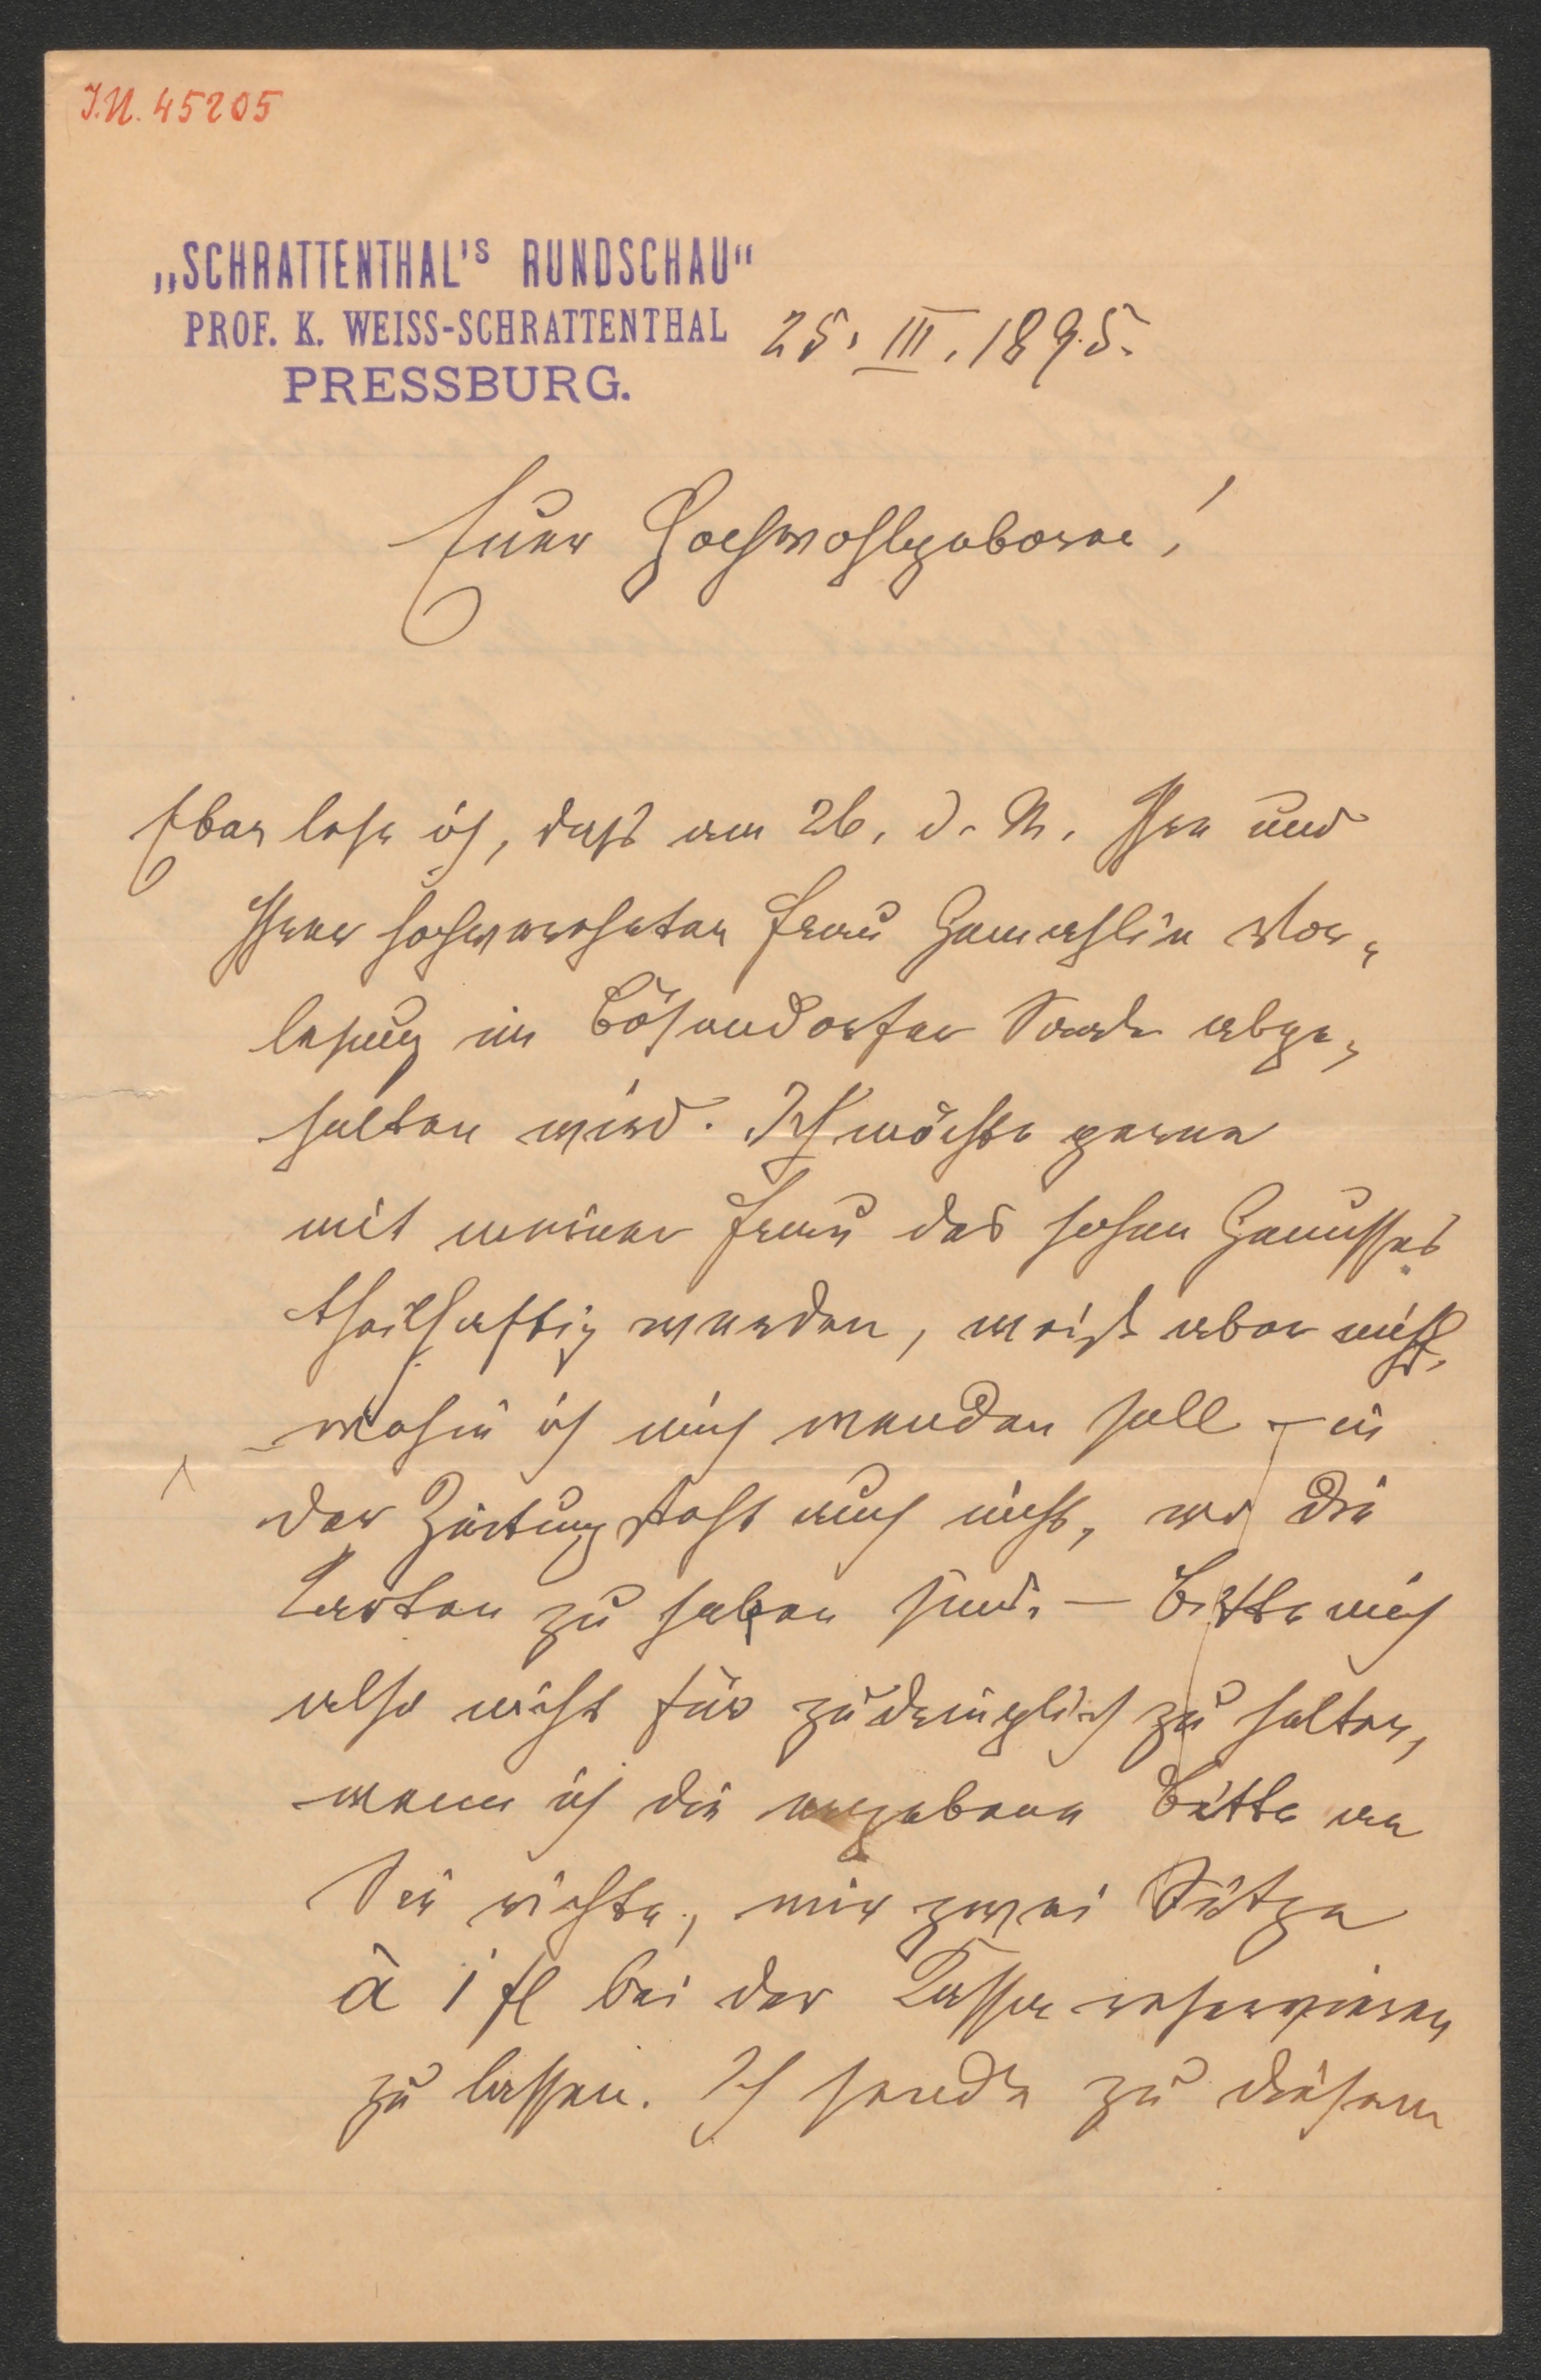 I.N. 45205
„SCHRATTENTHAL'S RUNDSCHAU“
PROF. K. WEISS-SCHRATTENTHAL
PRESSBURG.
25. III. 1895.
Euer Hochwohlgeboren!
Eben lese ich, daß am 26. d. M. Ihre und
Ihrer hochverehrten Frau Gemahlin Vor-
lesung im Bösendorfer Saale abge-
halten wird. Ich möchte gerne
mit meiner Frau des hohen Genusses
theilhaftig werden, weiß aber nicht,
wohin ich mich wenden soll – in
der Zeitung steht auch nicht, wo die
Karten zu haben sind. – Bitte mich
also nicht für zudringlich zu halten,
wenn ich die ergebene Bitte an
Sie richte, mir zwei Sitze
à 1 fl bei der Kasse reservieren
zu lassen. Ich sende zu diesem